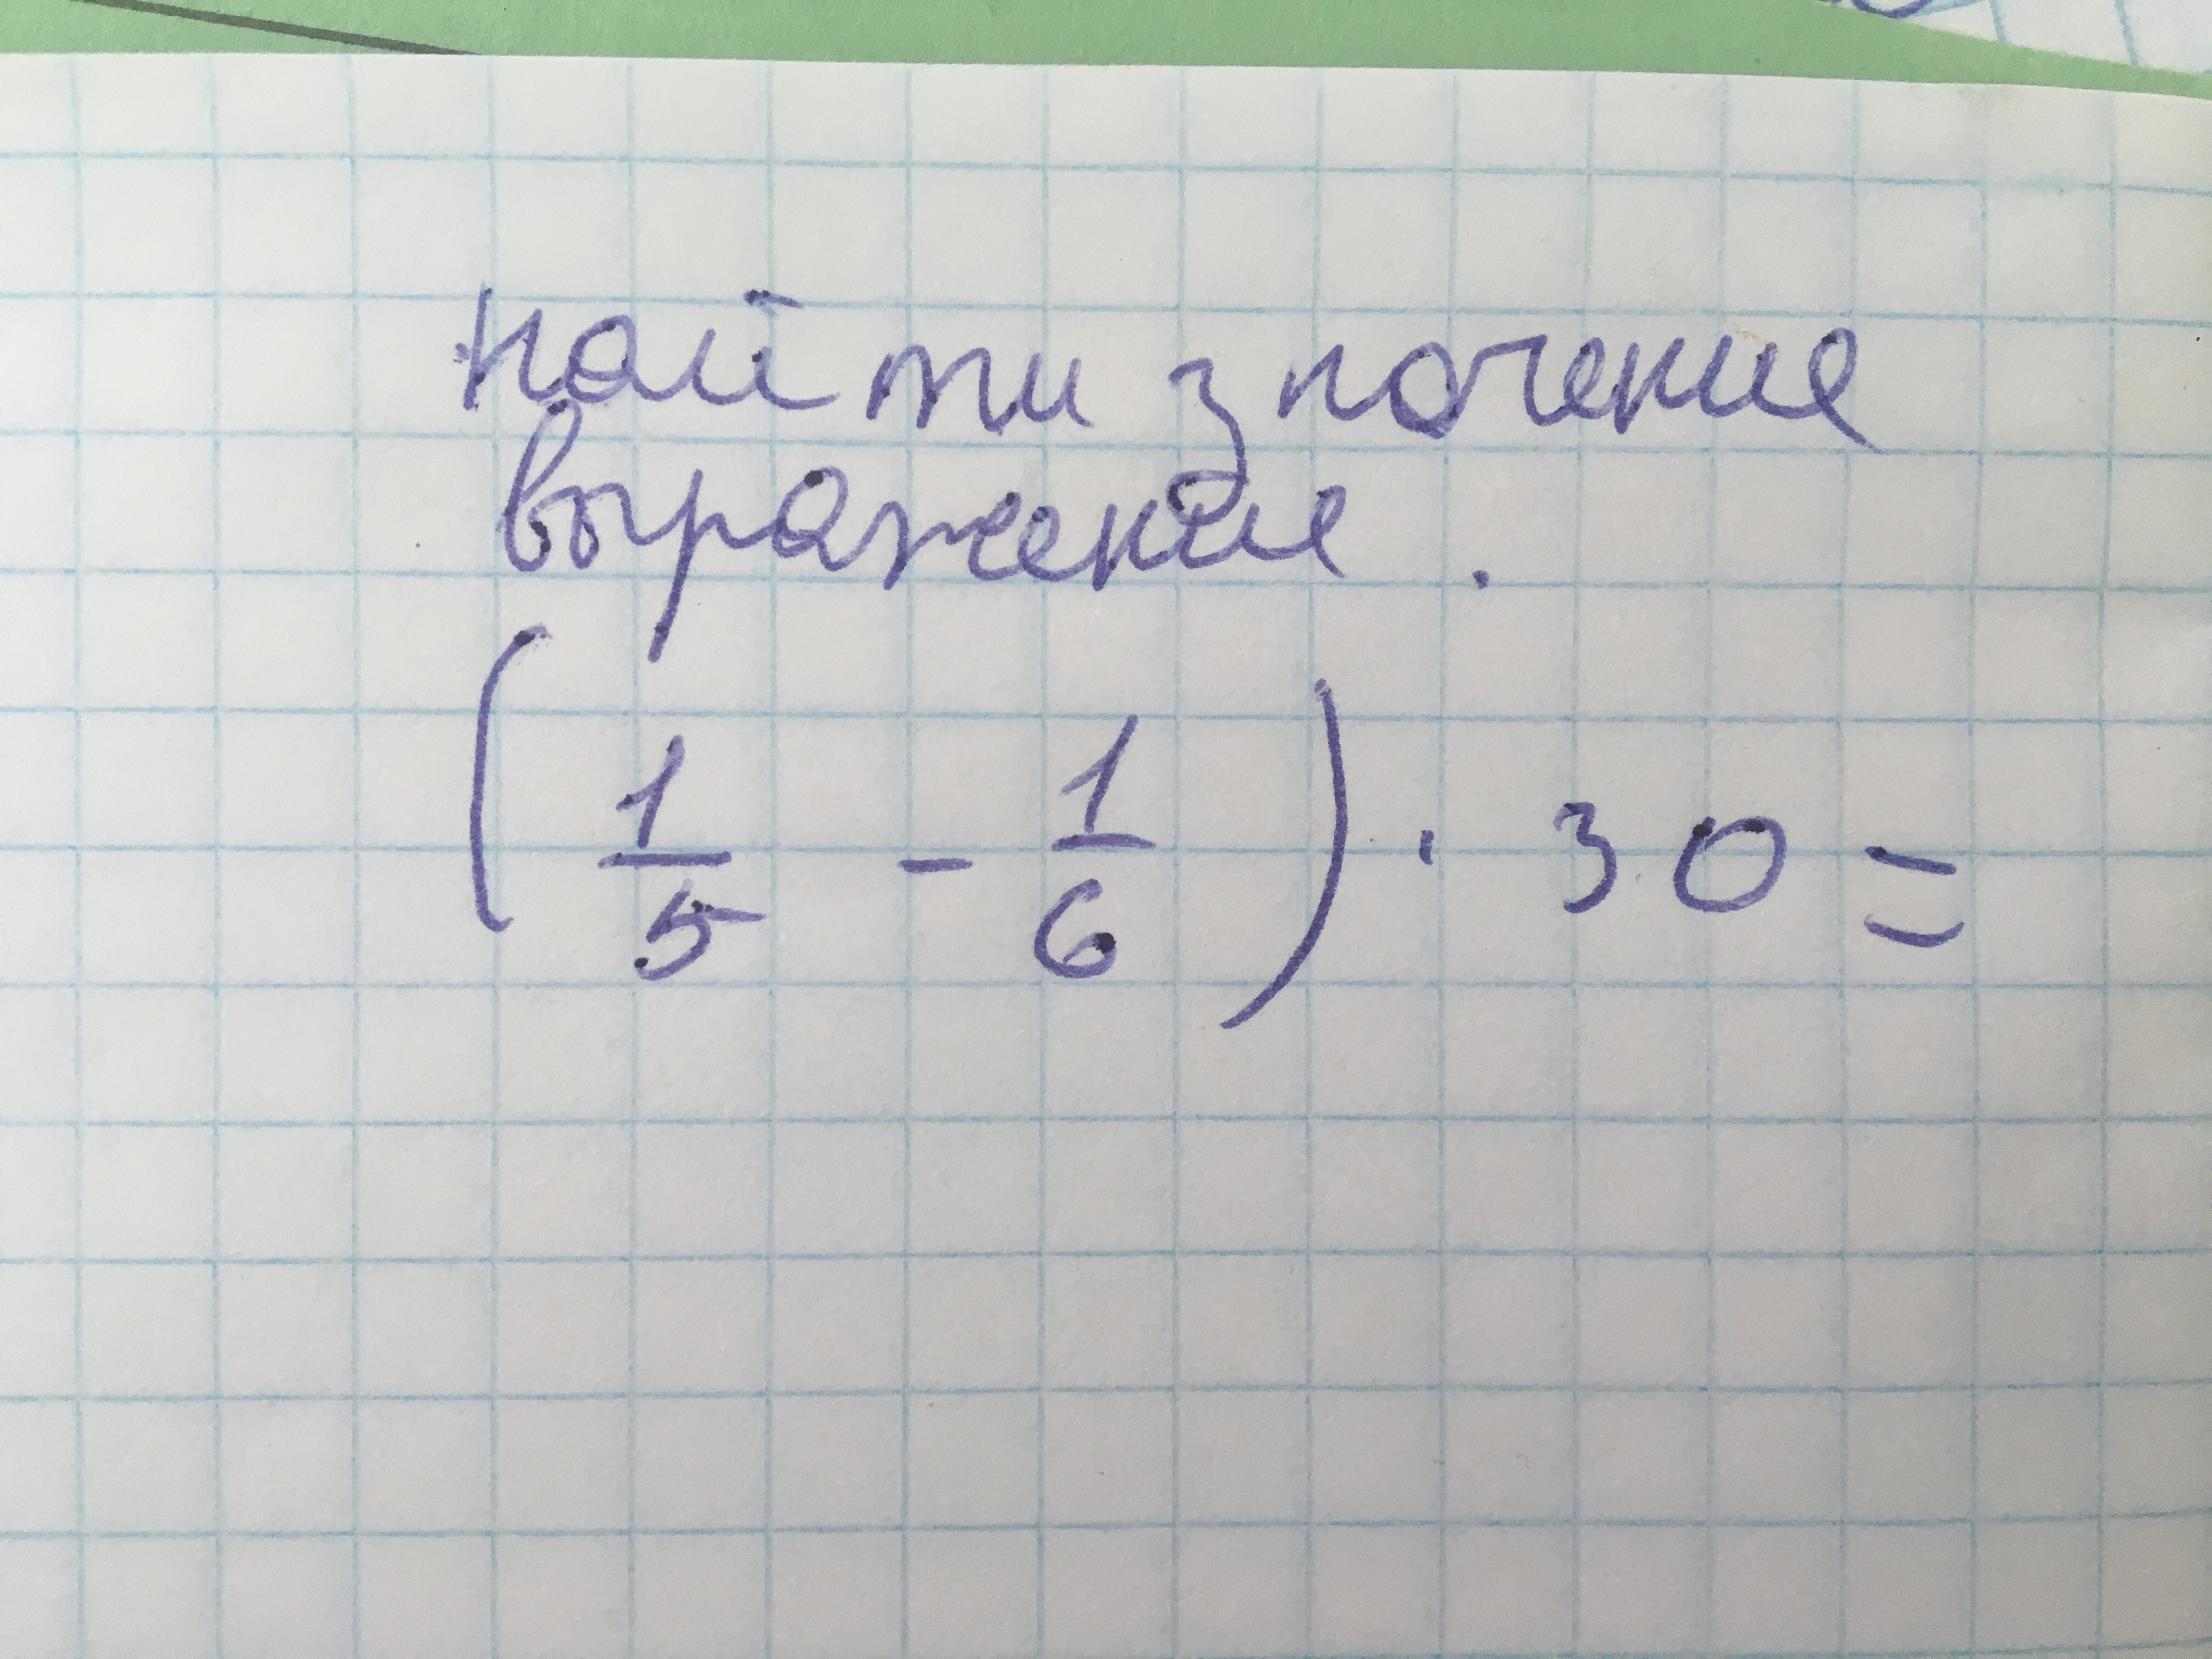 найти значение
выражение.
( 1/5 - 1/6 ) · 30 =